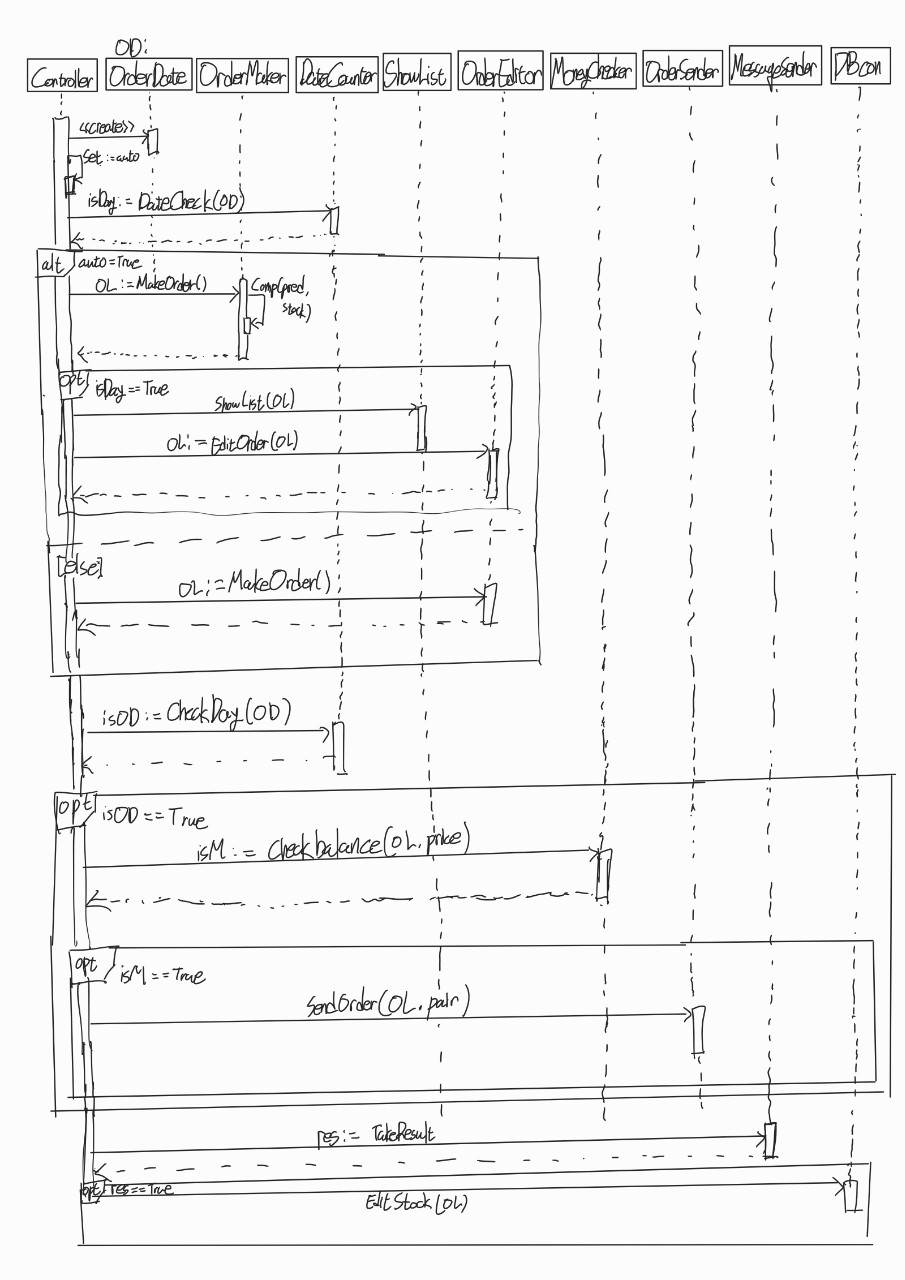 OD:
Controller
OrderDate
OrderMaker
DateCounter
ShowList
OrderEditor
MoneyChecker
OrderSender
MessageSender
DBcon
<<create>>
Set:=auto
isDay:= DateCheck(OD)
alt
auto=True
OL:=MakeOrder()
Comp(pred,
stock)
opt
isDay==True
ShowList(OL)
OL:=EditOrder(OL)
[else]
OL:=MakeOrder()
isOD:=CheckDay(OD)
opt
isOD==True
isM:= Checkbalance(OL.price)
opt
isM==True
SendOrder(OL.pair)
res:= TakeResult
opt
res==True
EditStock(OL)